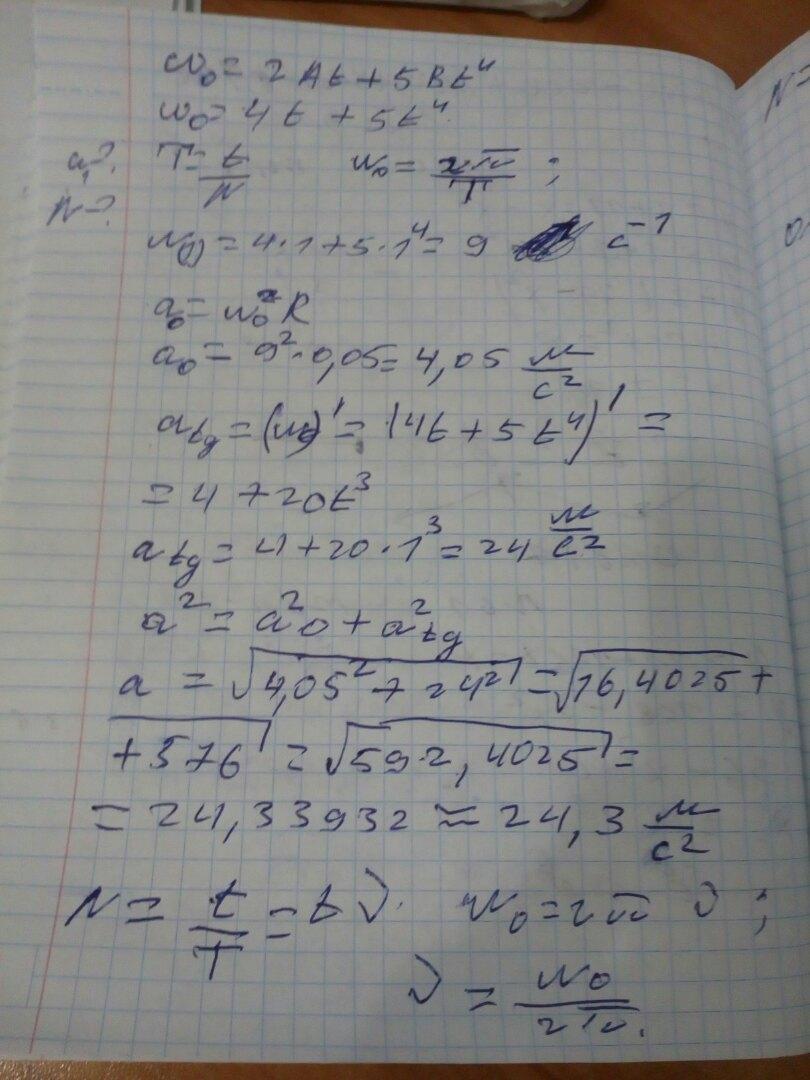 ω₀ = 2At + 5Bt⁴
ω₀ = 4t + 5t⁴
a-?. T = t/N ω₀ = 2π/T ;
N-?
ω₀ = 4·1 + 5·1⁴ = 9 c⁻¹
a₀ = ω₀²R
a₀ = 9²·0,05 = 4,05 м/c²
a_tg = (ω₀)' = (4t + 5t⁴)' =
= 4 + 20t³
a_tg = 4 + 20·1³ = 24 м/c²
a² = a²₀ + a²_tg
a = √4,05² + 24² = √16,4025 +
+ 576 = √592,4025 =
= 24,33932 ≈ 24,3 м/c²
N = t/T = tν. ω₀ = 2πν ;
ν = ω₀/2π.
N=